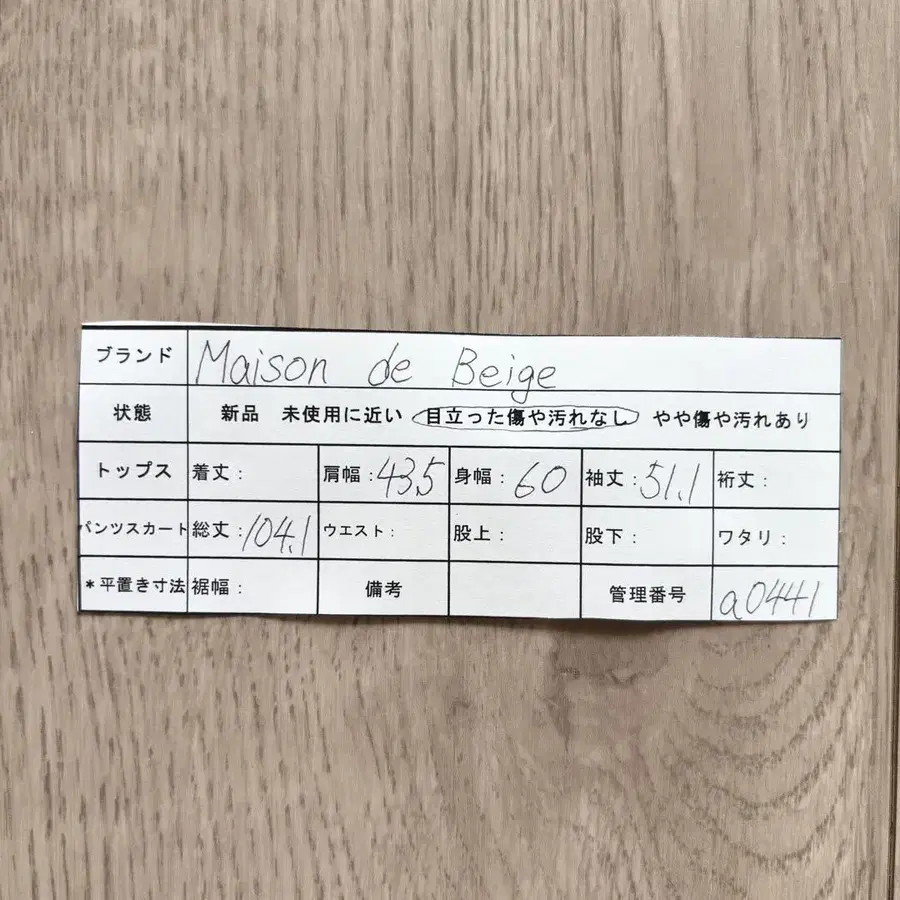 ブランド Maison de Beige
状態 新品 未使用に近い 目立った傷や汚れなし やや傷や汚れあり
トップス 着丈: 肩幅:43.5 身幅:60 袖丈:51.1 裄丈:
パンツスカート 総丈:104.1 ウエスト: 股上: 股下: ワタリ:
*平置き寸法 裾幅: 備考 管理番号 a0441